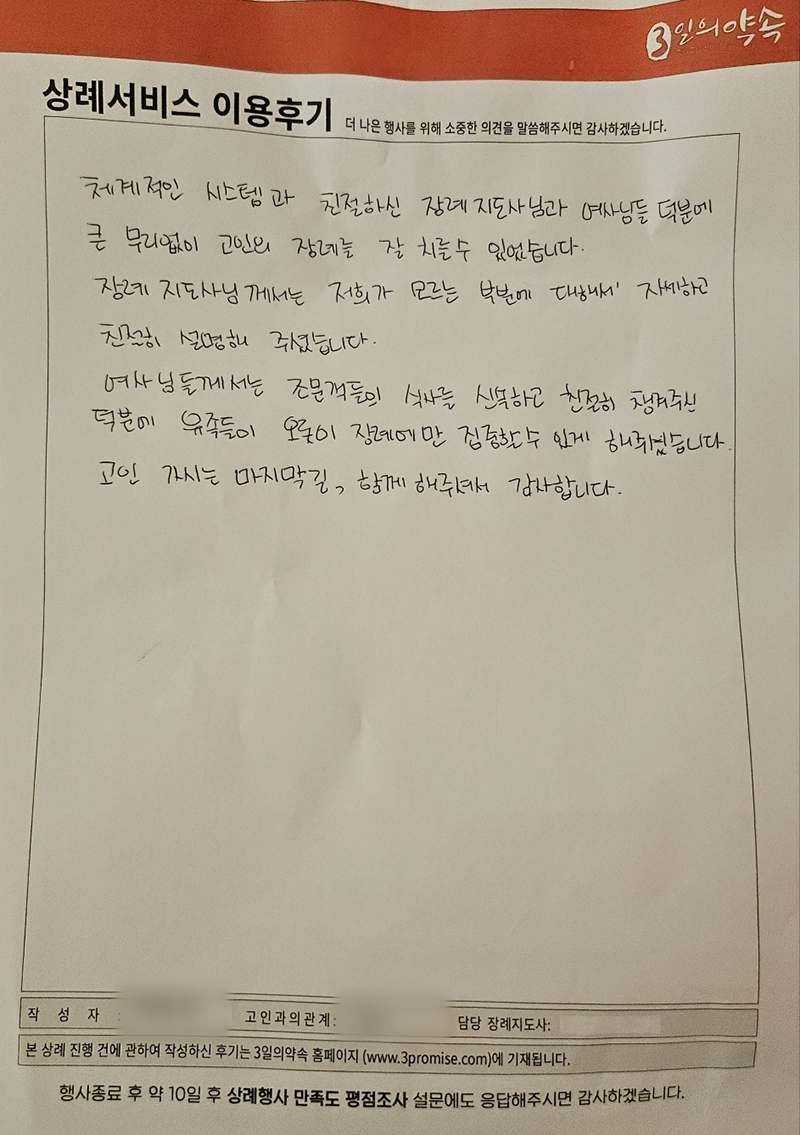 3일의약속
상례서비스 이용후기 더 나은 행사를 위해 소중한 의견을 말씀해주시면 감사하겠습니다.
체계적인 시스템과 친절하신 장례지도사님과 여사님들 덕분에
큰 무리없이 고인의 장례를 잘 치를수 있었습니다.
장례 지도사님께서는 저희가 모르는 부분에 대해서 자세하고
친절히 설명해 주셨습니다.
여사님들께서는 조문객들의 식사를 신속하고 친절히 챙겨주신
덕분에 유족들이 오롯이 장례에만 집중할수 있게 해주셨습니다.
고인 가시는 마지막길, 함께 해주셔서 감사합니다.
작 성 자 : 고인과의관계: 담당 장례지도사:
본 상례 진행 건에 관하여 작성하신 후기는 3일의약속 홈페이지 (www.3promise.com)에 기재됩니다.
행사종료 후 약 10일 후 상례행사 만족도 평점조사 설문에도 응답해주시면 감사하겠습니다.